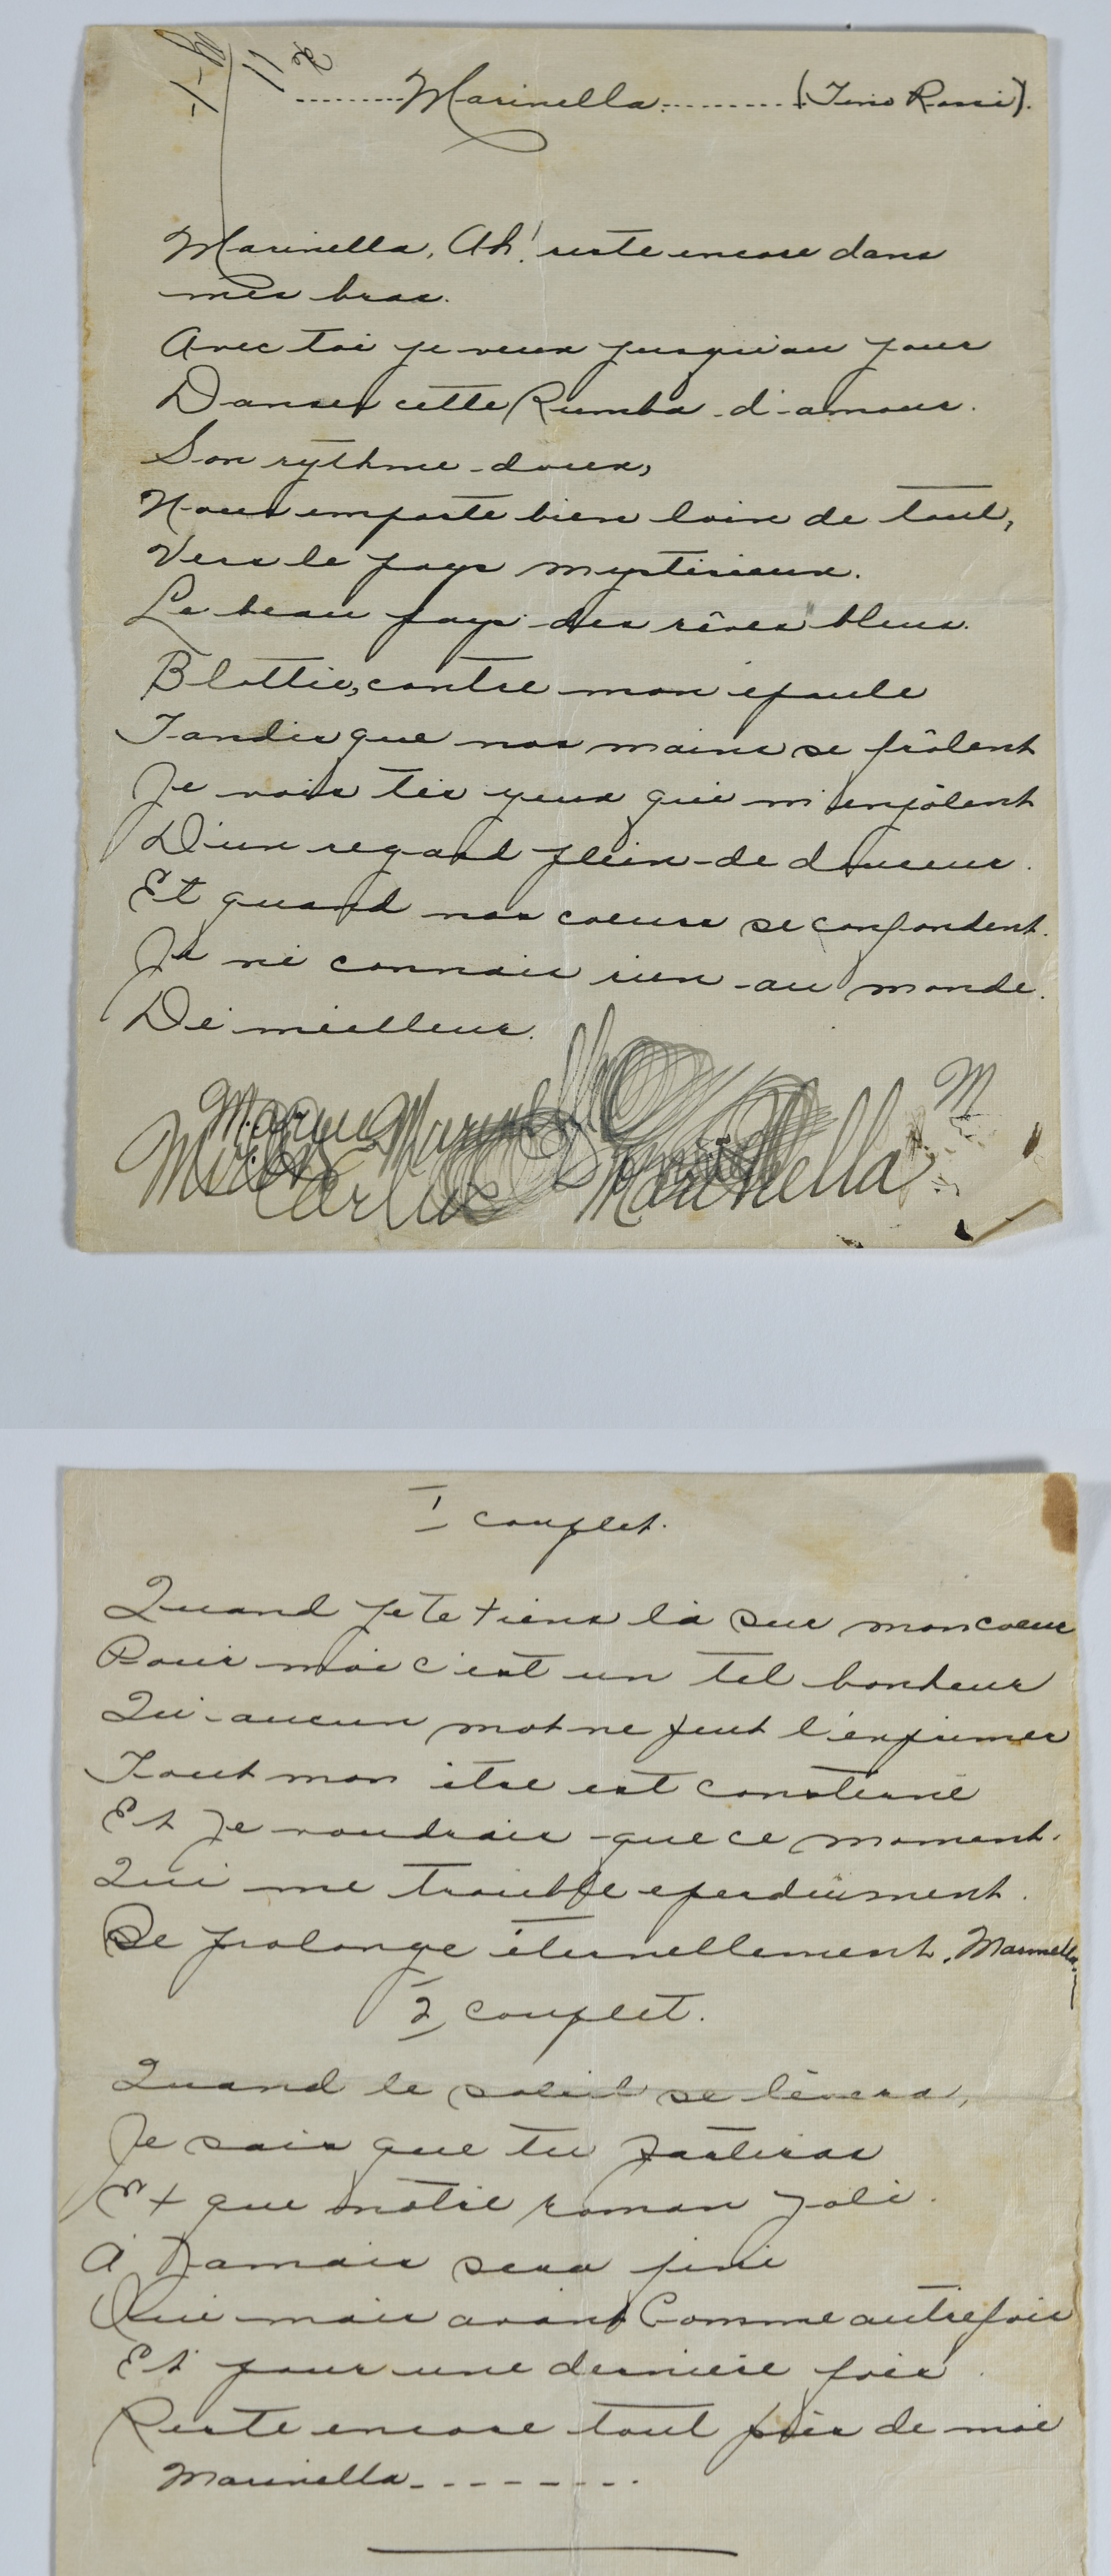 ........Marinella.......... (Tino Rossi).
Marinella, Ah! reste encore dans
mes bras.
Avec toi je veux jusqu'au jour
Danser cette Rumba d'amour.
Son rythme doux,
Nous emporte bien loin de tout,
Vers le pays mystérieux.
Le beau pays des rêves bleus.
Blottie, contre mon épaule
Tandis que nos mains se frôlent
Je vois tes yeux qui m'enjôlent
D'un regard plein de douceur.
Et quand nos coeurs se confondent.
Je ne connais rien au monde.
De meilleur.
M
Marinella
1 couplet.
Quand je te tiens là sur mon coeur
Pour moi c'est un tel bonheur
Qu'aucun mot ne peut l'exprimer
Tout mon être est consterné
Et je voudrais que ce moment.
Qui me trouble eperdument.
Se prolonge éternellement. Marinella
2 couplet.
Quand le soleil se lèvera,
Je sais que tu partiras
Et que notre roman joli.
A Jamais sera fini
Oui mais avant Comme autrefois
Et pour une dernière fois.
Reste encore tout près de moi
Marinella.--------.